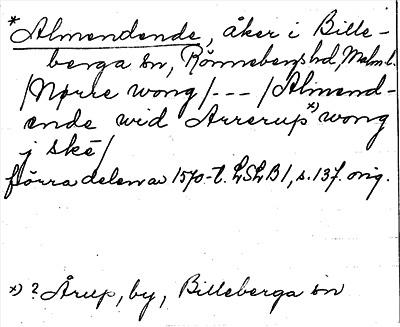 *Almendende, åker i Bille-
berga sn, Rönnebergs hd, Malm. l.
/Nørre wong/ --- /Almend-
ende wid Arrerup*) wong
j ské/
förra delen av 1570-t. LSLB1, s. 137. orig.
*) ? Årup, by, Billeberga sn